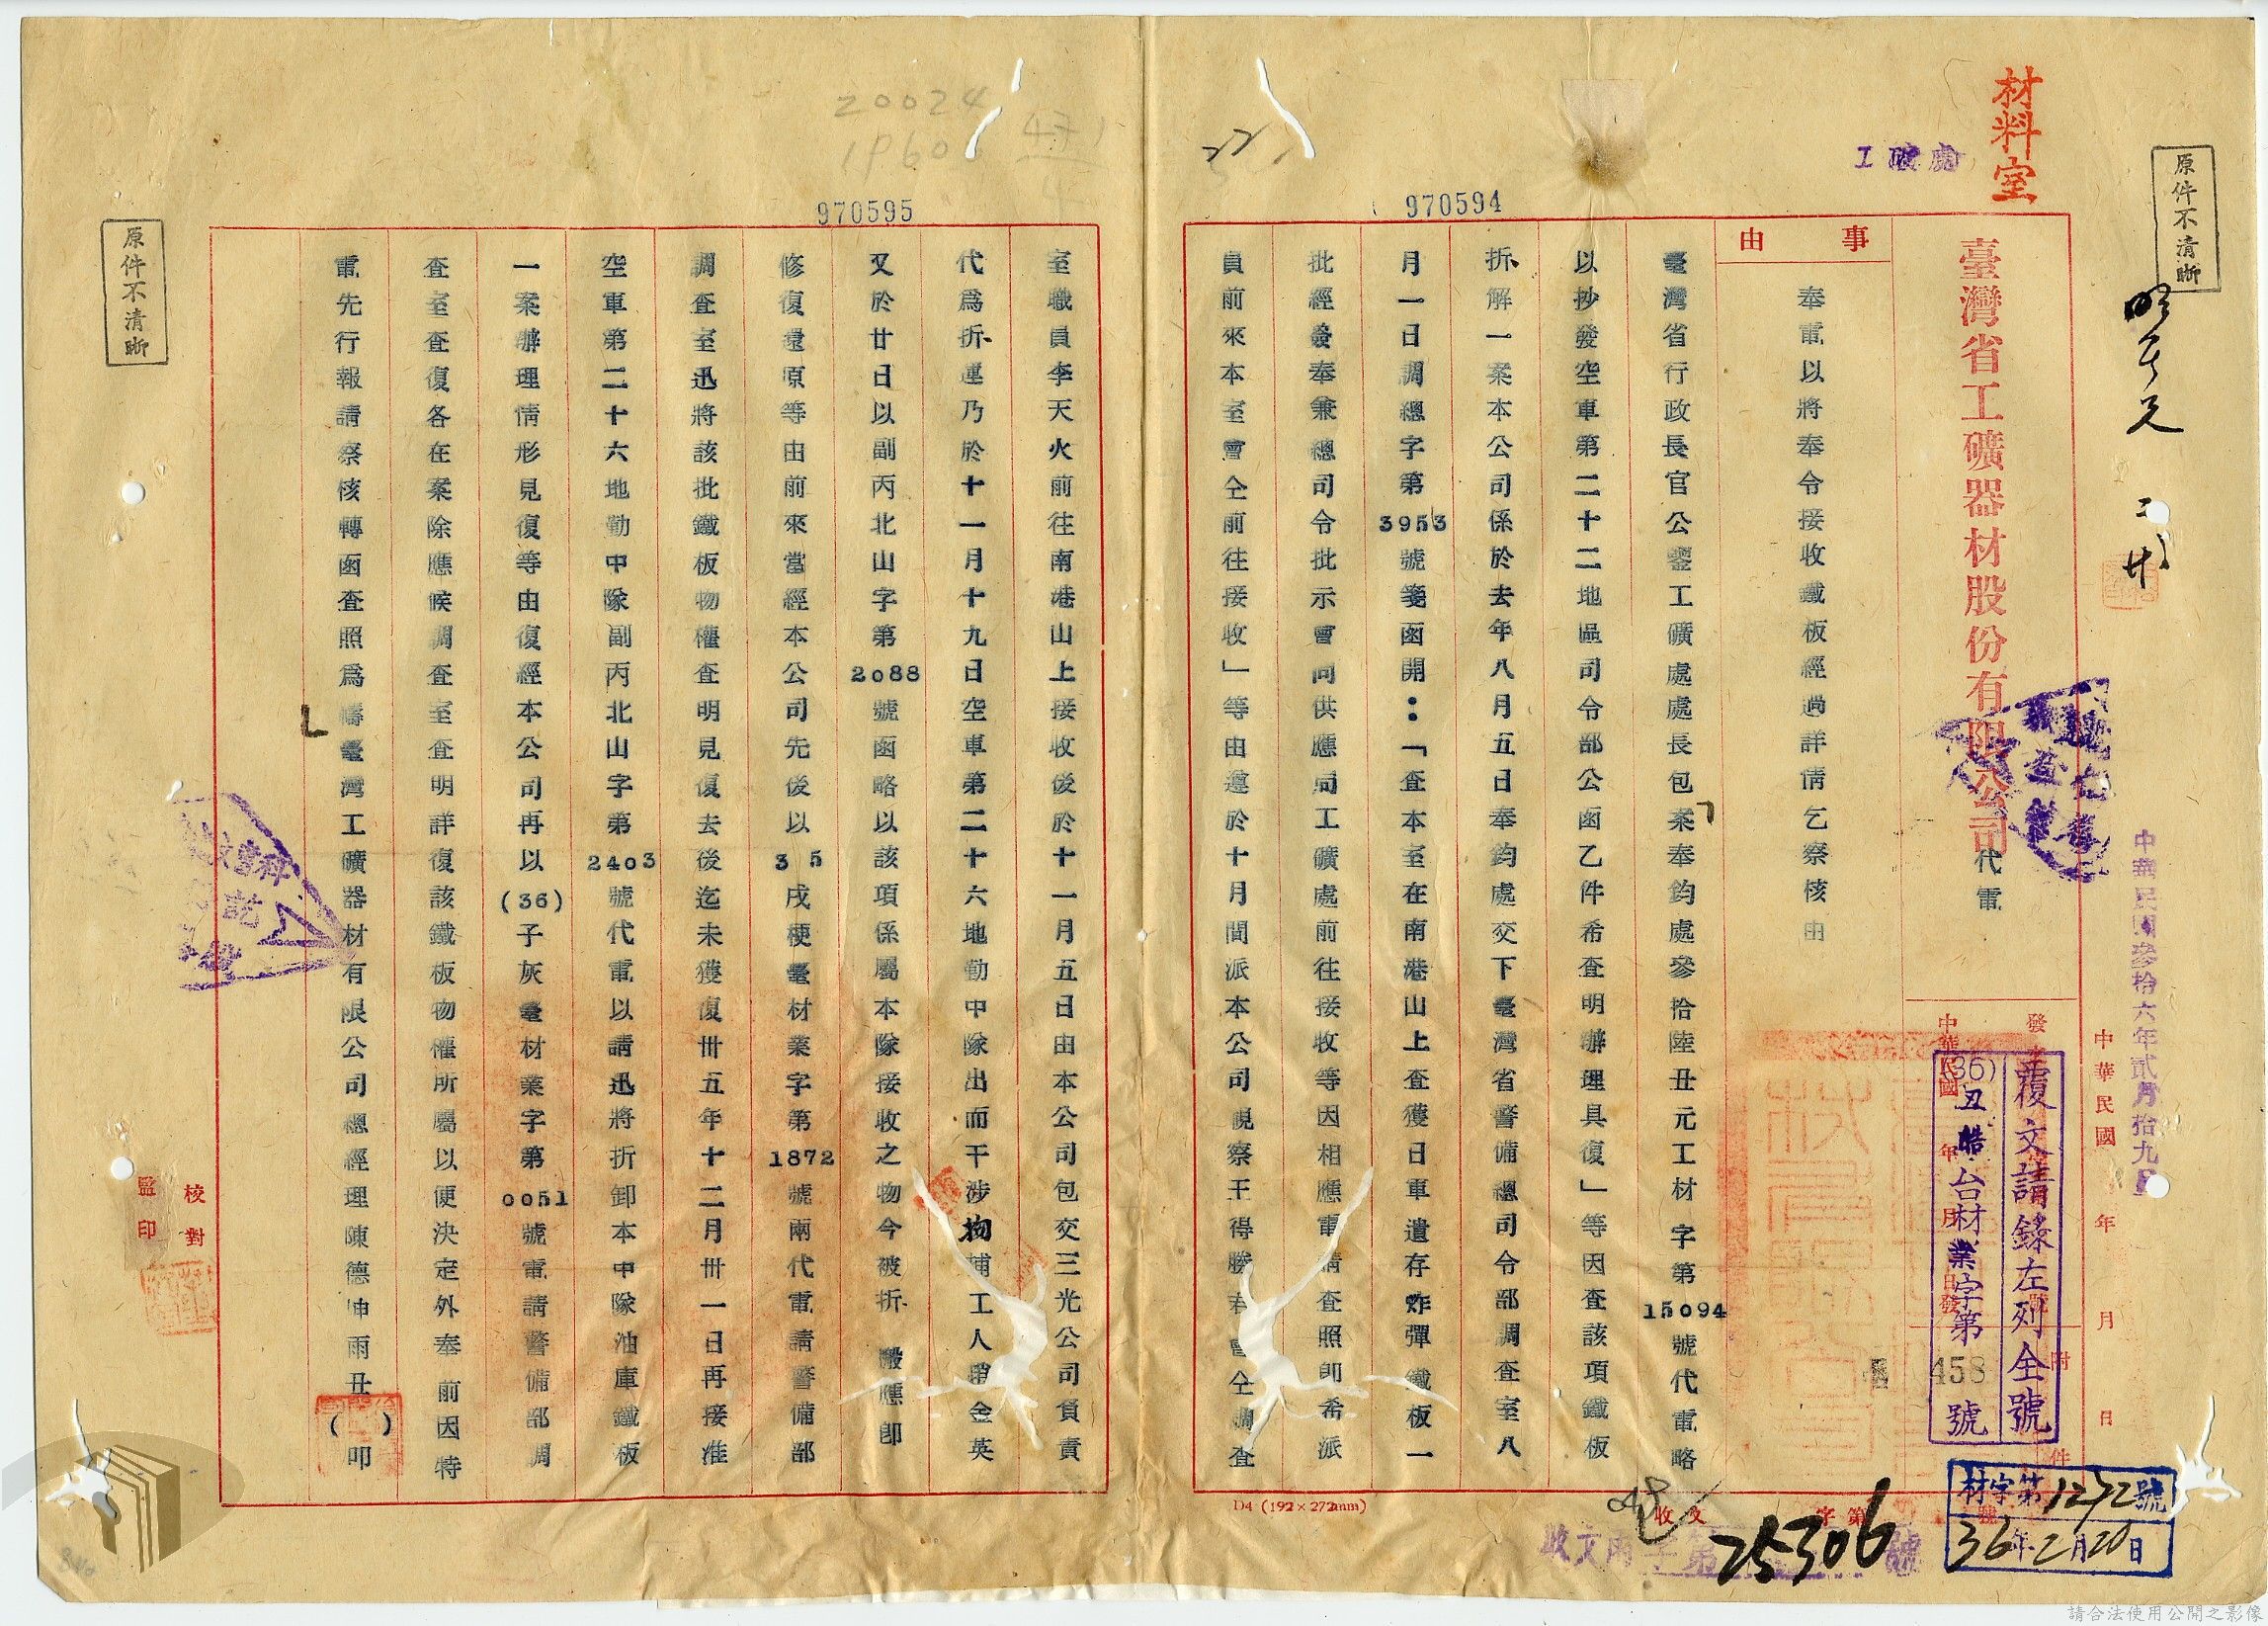 材料室
工礦處
原件不清晰
970594
臺灣省工礦器材股份有限公司代電
事由
奉電以將奉令接收鐵板經過詳情乞察核由
中華民國參拾六年貳月拾九日
中華民國 年 月 日
覆文請錄左列全號
(36)丑皓台材業字第458號
材字第1272號
36年2月20日
收文 字第 號
25306
臺灣省行政長官公署工礦處處長包案奉鈞處參拾陸丑元工材字第15094號代電略
以抄發空軍第二十二地區司令部公函乙件希查明辦理具復」等因查該項鐵板
拆解一案本公司係於去年八月五日奉鈞處交下臺灣省警備總司令部調查室八
月一日調總字第3953號箋函開:「查本室在南港山上查獲日軍遺存炸彈鐵板一
批經簽奉兼總司令批示會同供應局工礦處前往接收等因相應電請查照即希派
員前來本室會仝前往接收」等由遵於十月間派本公司視察王得勝奉會仝調查
D4 (192×272mm)
970595
室職員李天火前往南港山上接收後於十一月五日由本公司包交三光公司負責
代為折運乃於十一月十九日空軍第二十六地勤中隊出而干涉拘捕工人趙金英
又於廿日以副丙北山字第2088號函略以該項係屬本隊接收之物今被折 搬應卽
修復還原等由前來當經本公司先後以35戌梗臺材業字第1872號兩代電請警備部
調查室迅將該批鐵板物權查明見復去後迄未獲復卅五年十二月卅一日再接准
空軍第二十六地勤中隊副丙北山字第2403號代電以請迅將折卸本中隊油庫鐵板
一案辦理情形見復等由復經本公司再以(36)子灰臺材業字第0051號電請警備部調
查室查復各在案除應候調查室查明詳復該鐵板物權所屬以便決定外奉前因特
電先行報請察核轉函查照爲禱臺灣工礦器材有限公司總經理陳德坤雨丑( )叩
校對
監印
原件不清晰
請合法使用公開之影像